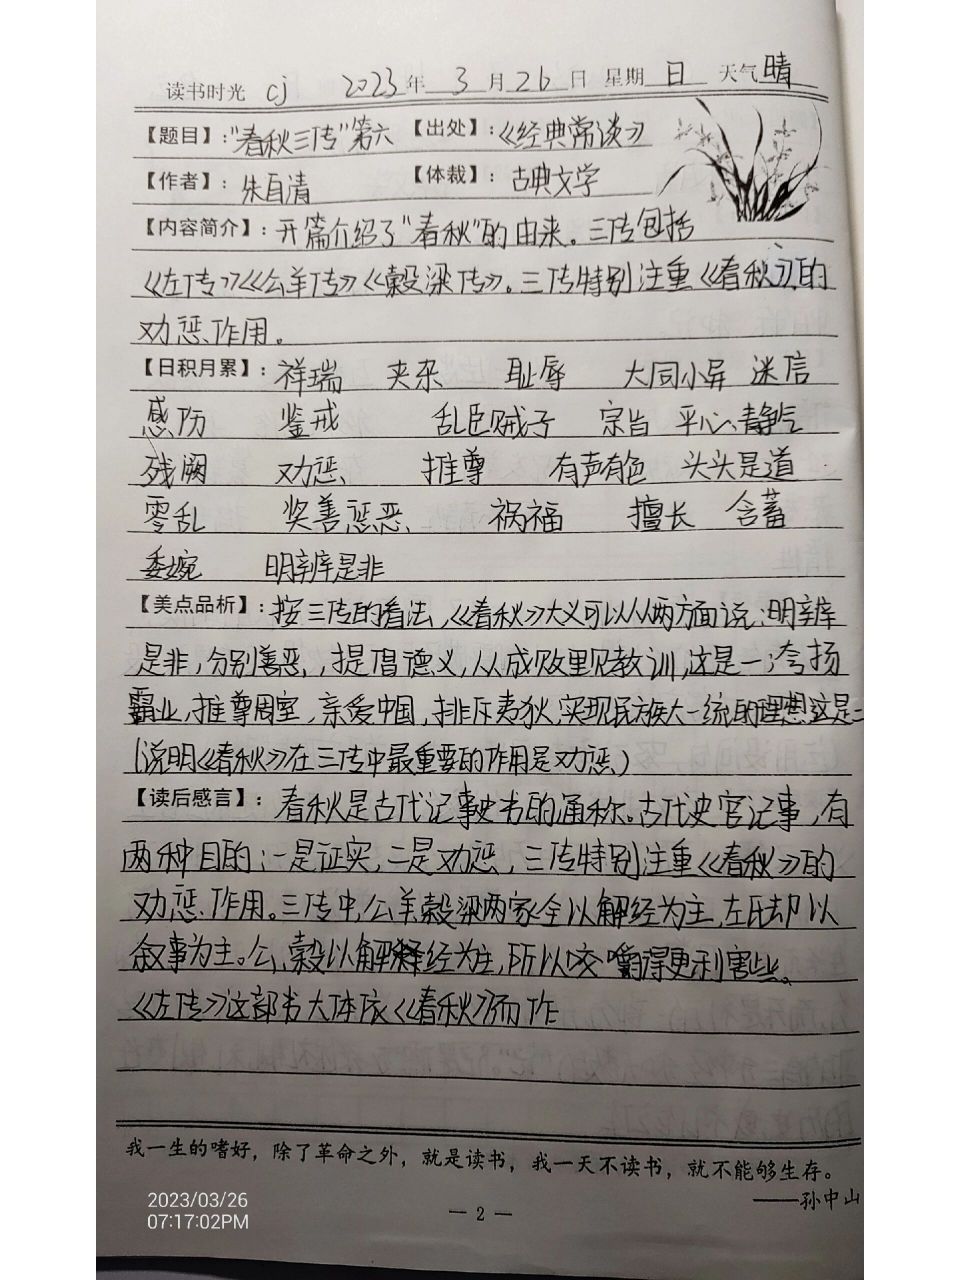 读书时光 cj 2023年 3月26日 星期日 天气晴
【题目】:"春秋三传"第六 【出处】:《经典常谈》
【作者】:朱自清 【体裁】:古典文学
【内容简介】:开篇介绍了"春秋"的由来。三传包括
《左传》《公羊传》《穀梁传》。三传特别注重《春秋》的
劝惩作用。
【日积月累】:祥瑞 夹杂 耻辱 大同小异 迷信
感伤 鉴戒 乱臣贼子 宗旨 平心静气
残阙 劝惩 推尊 有声有色 头头是道
零乱 奖善惩恶 祸福 擅长 含蓄
委婉 明辨是非
【美点品析】:按三传的看法,《春秋》大义可以从两方面说:明辨
是非,分别善恶,提倡德义,从成败里见教训,这是一;夸扬
霸业,推尊周室,亲爱中国,排斥夷狄,实现民族大一统的理想这是二
(说明《春秋》在三传中最重要的作用是劝惩)
【读后感言】:春秋是古代记事史书的通称。古代史官记事,有
两种目的:一是证实,二是劝惩,三传特别注重《春秋》的
劝惩作用。三传中,公羊穀梁两家全以解经为主,左氏却以
叙事为主。公、穀以解释经为主,所以咬嚼得更利害些。
《左传》这部书大体依《春秋》而作
我一生的嗜好，除了革命之外，就是读书，我一天不读书，就不能够生存。
——孙中山
2023/03/26
07:17:02PM
— 2 —